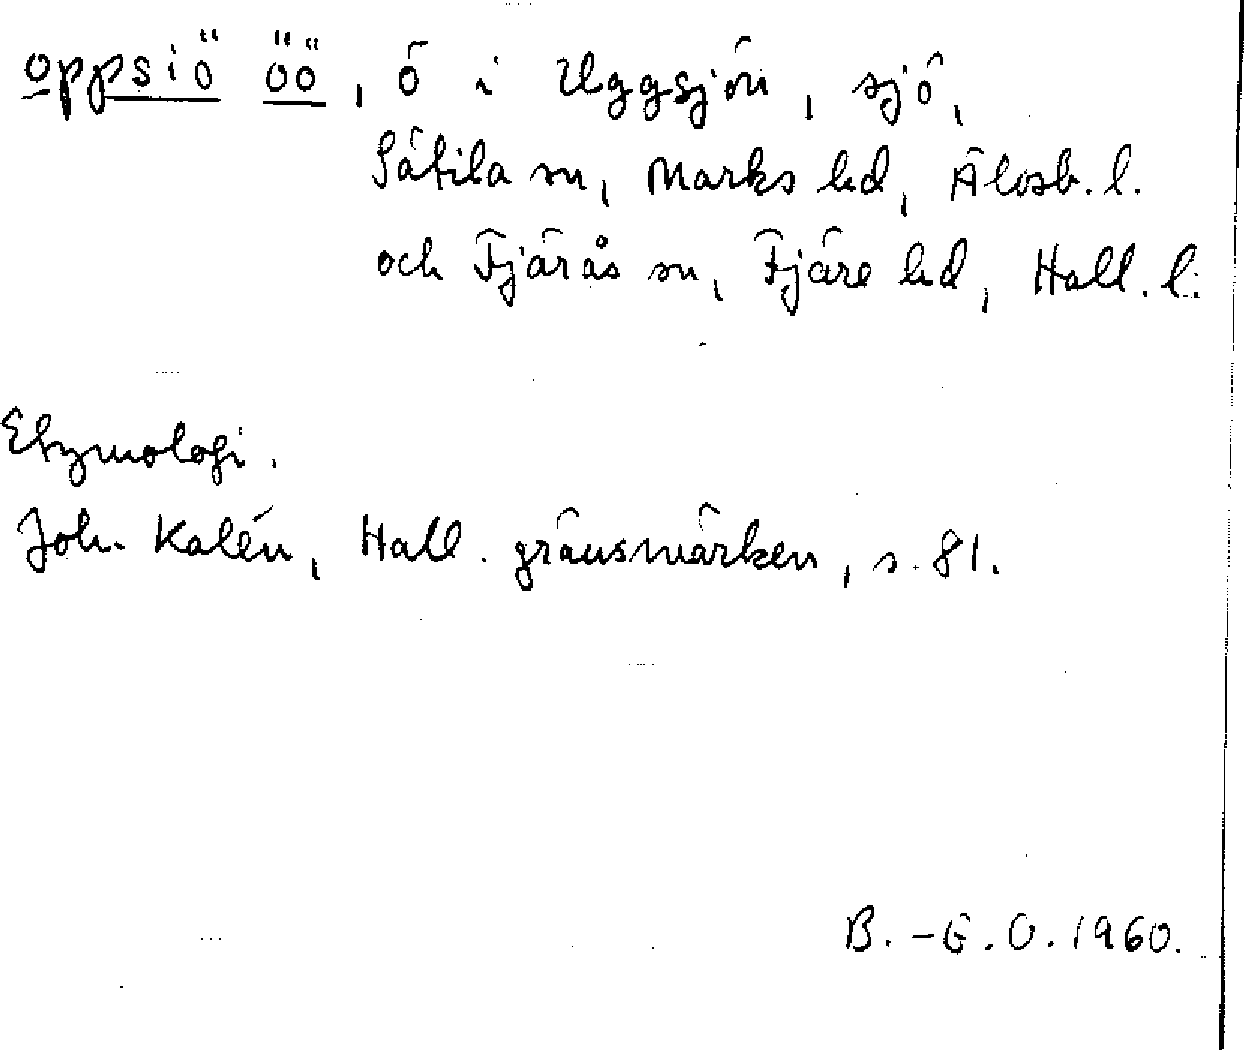 oppsiö öö, ö i Uggsjön, sjö,
Sätila sn, Marks hd, Älvsb. l.
och Fjärås sn, Fjäre hd, Hall. l.
Etymologi.
Joh. Kalén, Hall. gränsmärken, s. 81.
B.-G.O. 1960.